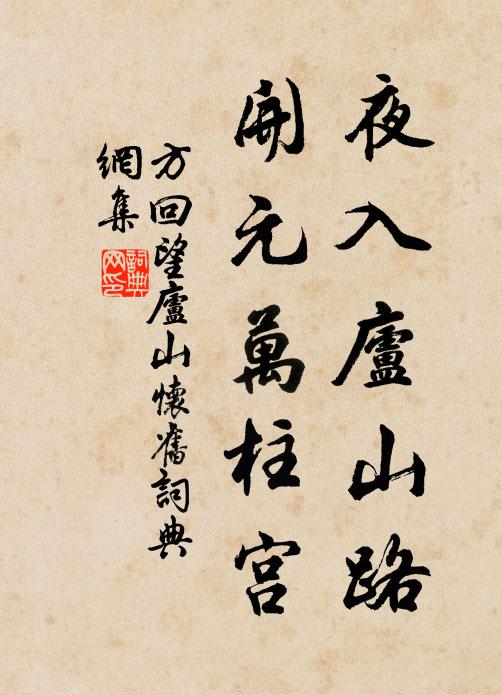 夜入廬山路
開元萬柱宮
方回望廬山懷舊詞典
網集
詞典
网印